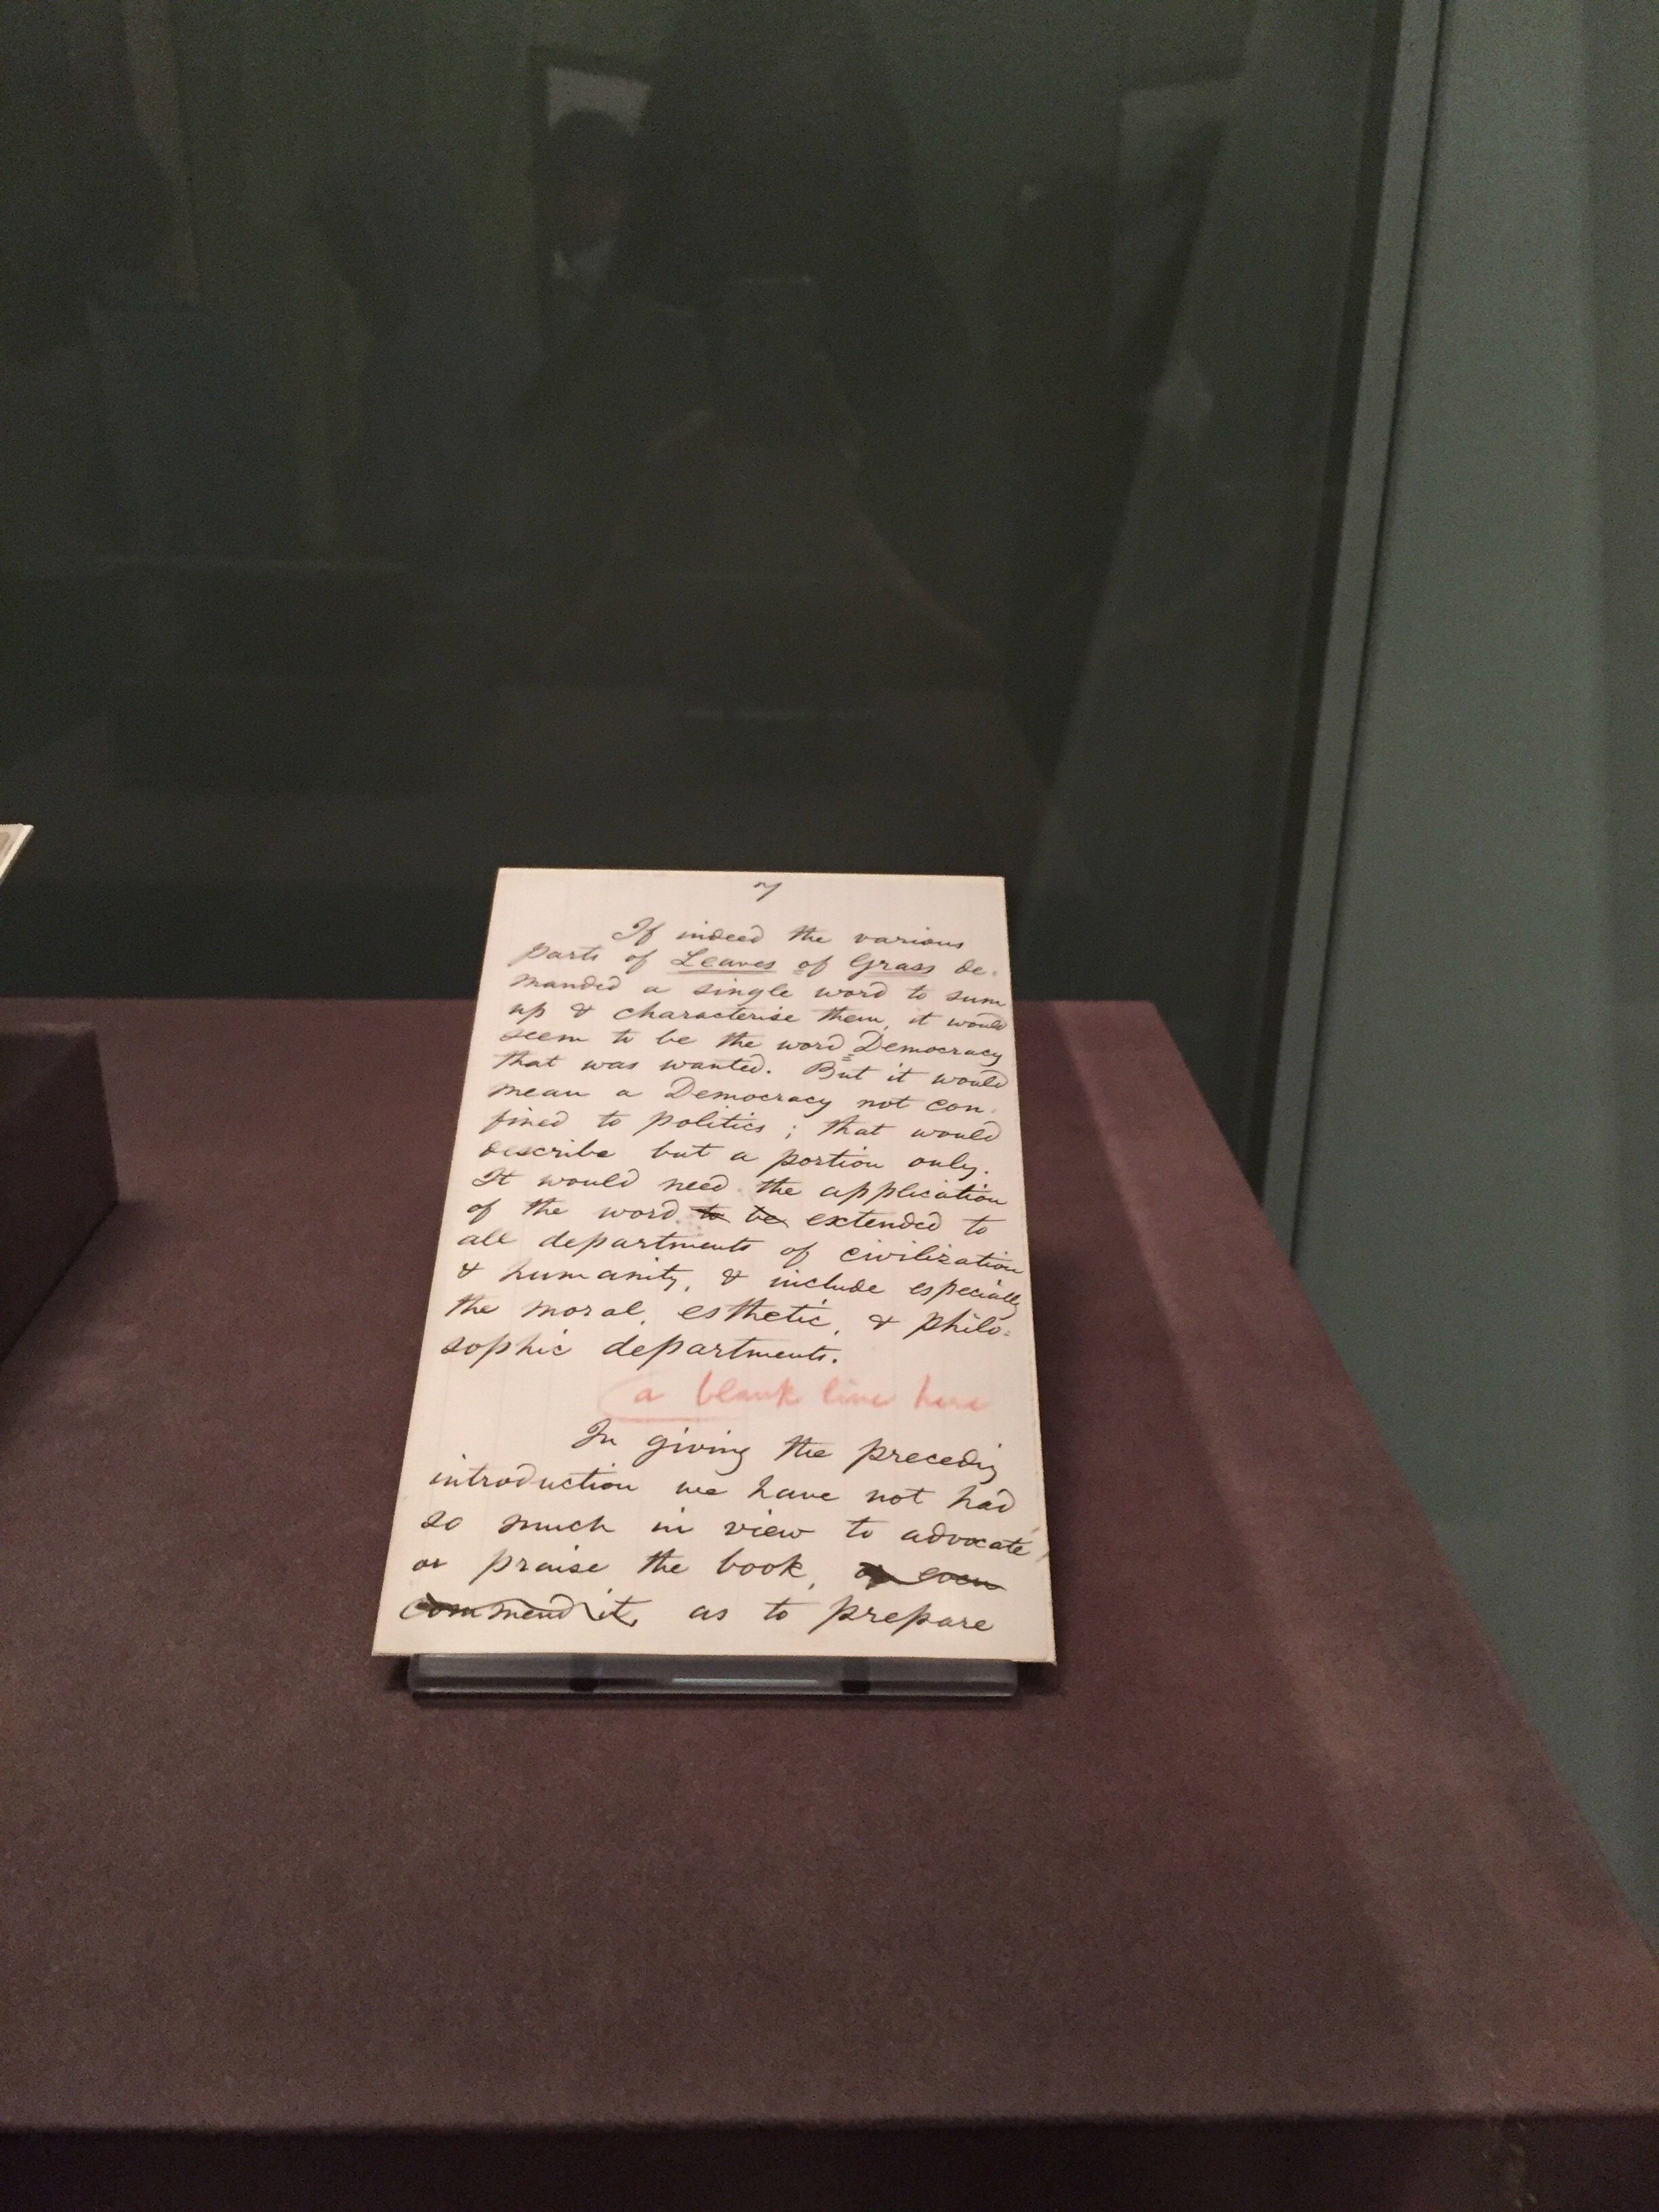 7
If indeed the various
parts of Leaves of Grass de-
manded a single word to sum
up & characterise them, it would
seem to be the word Democracy
that was wanted. But it would
mean a Democracy not con-
fined to politics; that would
describe but a portion only.
It would need the application
of the word to be extended to
all departments of civilization
& humanity, & include especially
the moral, esthetic, & philo-
sophic departments.
a blank line here
In giving the preceding
introduction we have not had
so much in view to advocate
or praise the book, or even
commend it, as to prepare